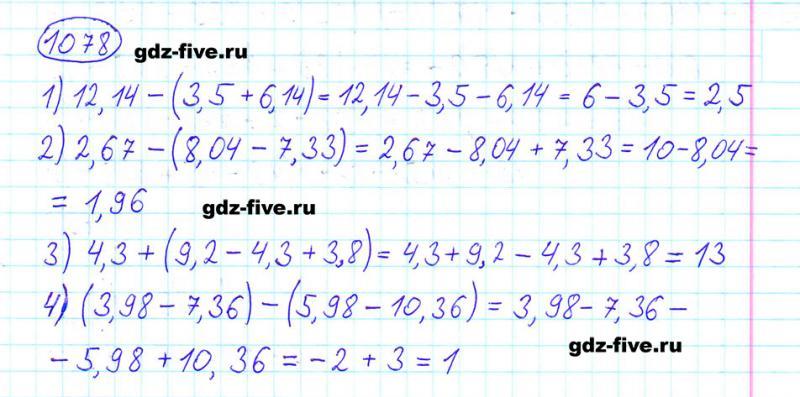 1078 gdz-five.ru
1) 12,14 - (3,5 + 6,14) = 12,14 - 3,5 - 6,14 = 6 - 3,5 = 2,5
2) 2,67 - (8,04 - 7,33) = 2,67 - 8,04 + 7,33 = 10 - 8,04 =
= 1,96 gdz-five.ru
3) 4,3 + (9,2 - 4,3 + 3,8) = 4,3 + 9,2 - 4,3 + 3,8 = 13
4) (3,98 - 7,36) - (5,98 - 10,36) = 3,98 - 7,36 -
- 5,98 + 10,36 = -2 + 3 = 1 gdz-five.ru